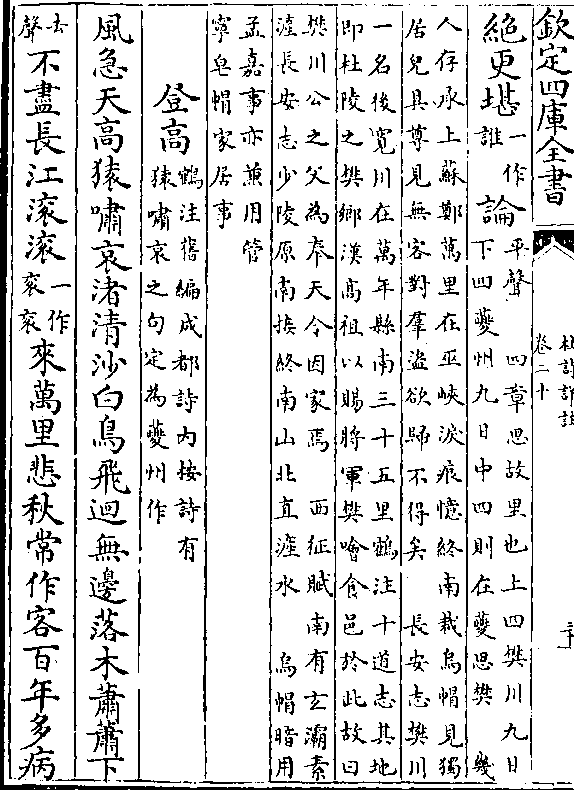 欽定四庫全書
杜詩詳註
卷二十
三十
絶更堪一作誰論平聲 四章思故里也上四樊川九日下四夔州九日中四則在夔思樊 幾
人存承上蘇鄭萬里在巫峽淚痕憶終南栽烏帽見獨
居兒具尊見無客對羣盜欲歸不得矣 長安志樊川
一名後寛川在萬年縣南三十五里鶴注十道志其地
即杜陵之樊鄉漢高祖以賜將軍樊噲食邑於此故曰
樊川公之父為奉天令因家焉 西征賦南有玄灞素
滻長安志少陵原南接終南山北直滻水 烏帽暗用
孟嘉事亦兼用管
寧皂帽家居事
登高鶴注舊編成都詩内按詩有猿嘯哀之句定為夔州作
風急天高猿嘯哀渚清沙白鳥飛迴無邊落木蕭蕭下
去聲不盡長江滚滚一作衮衮來萬里悲秋常作客百年多病